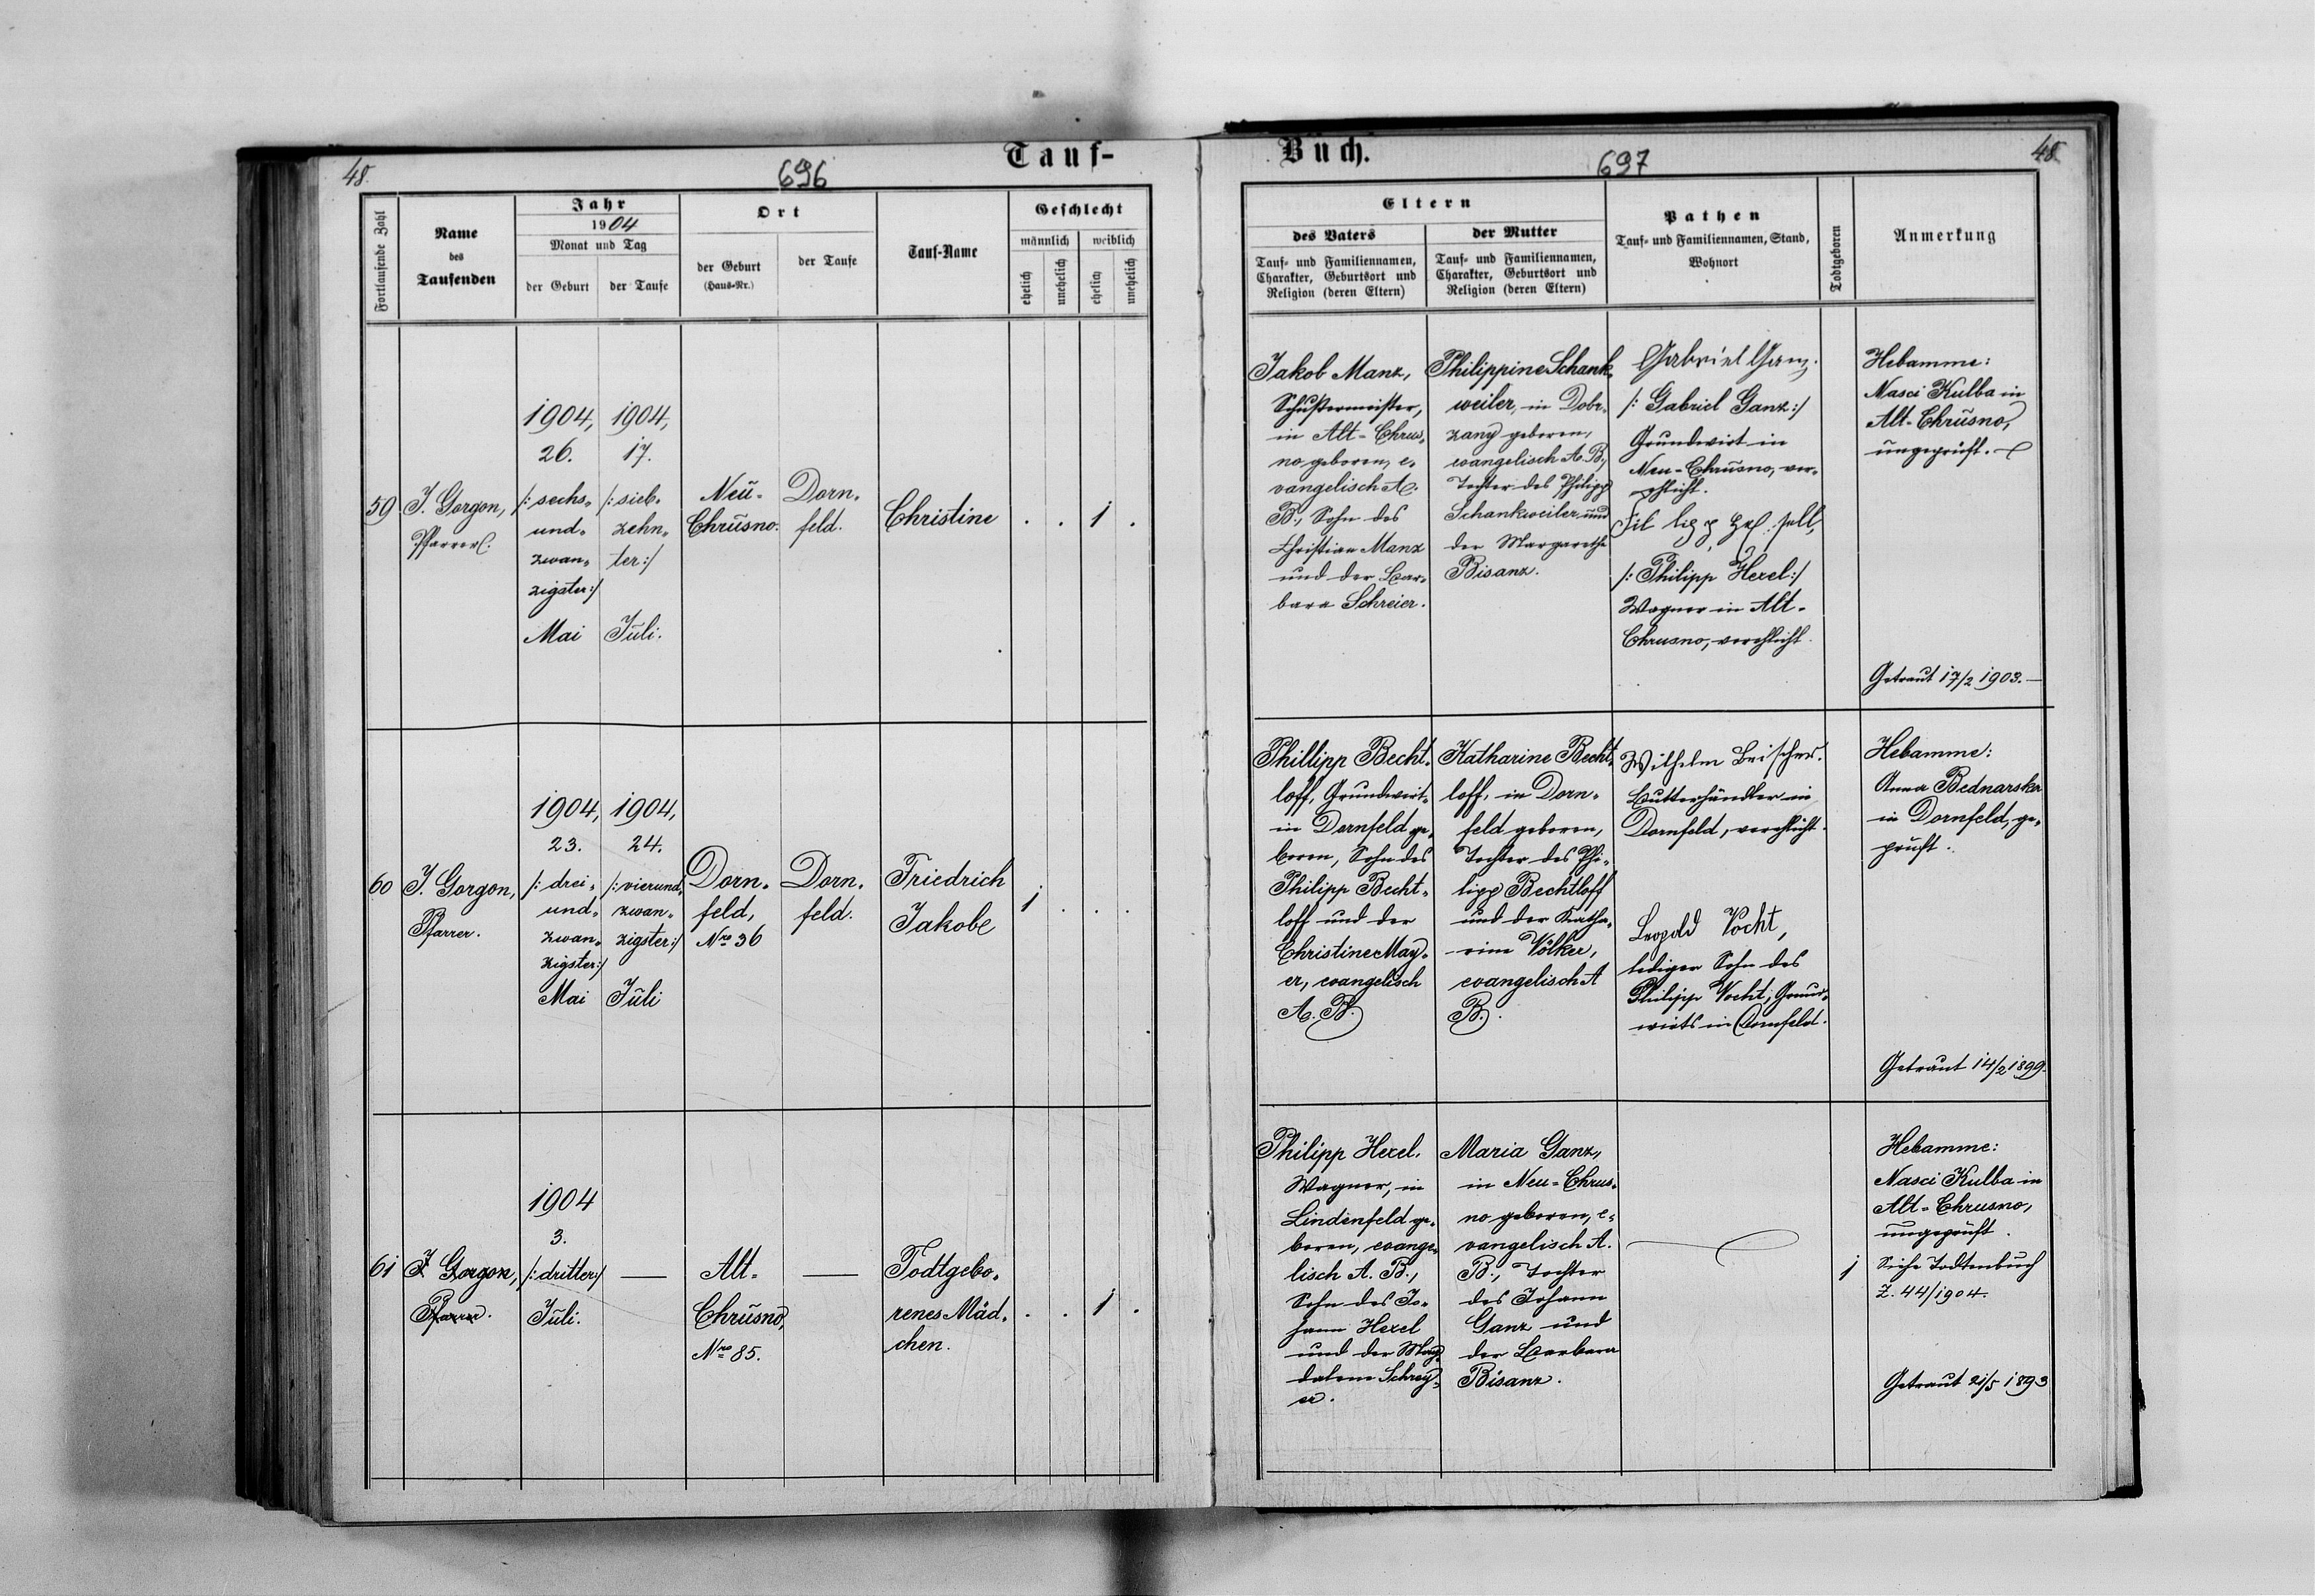 48.
696
Tauf-
Buch.
697
48
Fortlaufende Zahl
Name
des
Taufenden
Jahr
1904
Monat und Tag
der Geburt
der Taufe
Ort
der Geburt
(Haus-Nr.)
der Taufe
Tauf-Name
Geschlecht
männlich
weiblich
ehelich
unehelich
ehelich
unehelich
Eltern
des Vaters
Tauf- und Familiennamen,
Charakter, Geburtsort und
Religion (deren Eltern)
der Mutter
Tauf- und Familiennamen,
Charakter, Geburtsort und
Religion (deren Eltern)
Pathen
Tauf- und Familiennamen, Stand,
Wohnort
Todtgeboren
Anmerkung
59
J. Gorgon,
Pfarrer.
1904,
26.
/: sechs-
und-
zwan-
zigster:/
Mai
1904,
17.
/: sieb-
zehn-
ter:/
Juli.
Neu-
Chrusno.
Dorn-
feld.
Christine
. . 1 .
Jakob Manz,
Schustermeister,
in Alt-Chrus-
no geboren, e-
vangelisch A.
B., Sohn des
Christian Manz
und der Bar-
bara Schreier.
Philippine Schank-
weiler, in Dobr-
zany geboren,
evangelisch A. B.,
Tochter des Philipp
Schankweiler und
der Margarethe
Bisanz.
Gabriel Ganz.
/: Gabriel Ganz:/
Grundwirt in
Neu-Chrusno, ver-
ehlicht.
/: Philipp Hexel:/
Wagner in Alt-
Chrusno, verehlicht.
Hebamme:
Nasci Kulba in
Alt-Chrusno,
ungeprüft.
Getraut 17/2 1903.
60
J. Gorgon,
Pfarrer.
1904,
23.
/: drei-
und-
zwan-
zigster:/
Mai
1904,
24.
/: vierund-
zwan-
zigster:/
Juli
Dorn-
feld,
Nro 36
Dorn-
feld.
Friedrich
Jakob
1 . . .
Phillipp Becht-
loff, Grundwirt-
in Dornfeld ge-
boren, Sohn des
Philipp Becht-
loff und der
Christine May-
er, evangelisch
A. B.
Katharine Becht-
loff, in Dorn-
feld geboren,
Tochter des Phi-
lipp Bechtloff
und der Katha-
rine Völker,
evangelisch A
B.
Wilhelm
Butterhändler in
Dornfeld, verehlicht.
Leopold Vocht,
lediger Sohn des
Philipp Vocht, Grund-
wirts in Dornfeld.
Hebamme:
Anna Bednarska
in Dornfeld, ge-
prüft.
Getraut 14/2 1899.
61
J. Gorgon,
Pfarrer.
1904
3.
/: dritter:/
Juli.
Alt-
Chrusno,
Nro 85.
Todtgebo-
renes Mäd-
chen.
. . 1 .
Philipp Hexel,
Wagner, in
Lindenfeld ge-
boren, evange-
lisch A. B.,
Sohn des Jo-
hann Hexel
und der Mag-
dalene Schrey-
er.
Maria Ganz,
in Neu-Chrus-
no geboren, e-
vangelisch A.
B., Tochter
des Johann
Ganz und
der Barbara
Bisanz.
1
Hebamme:
Nasci Kulba in
Alt-Chrusno,
ungeprüft.
Siehe Todtenbuch
Z. 44/1904.
Getraut 21/5 1893